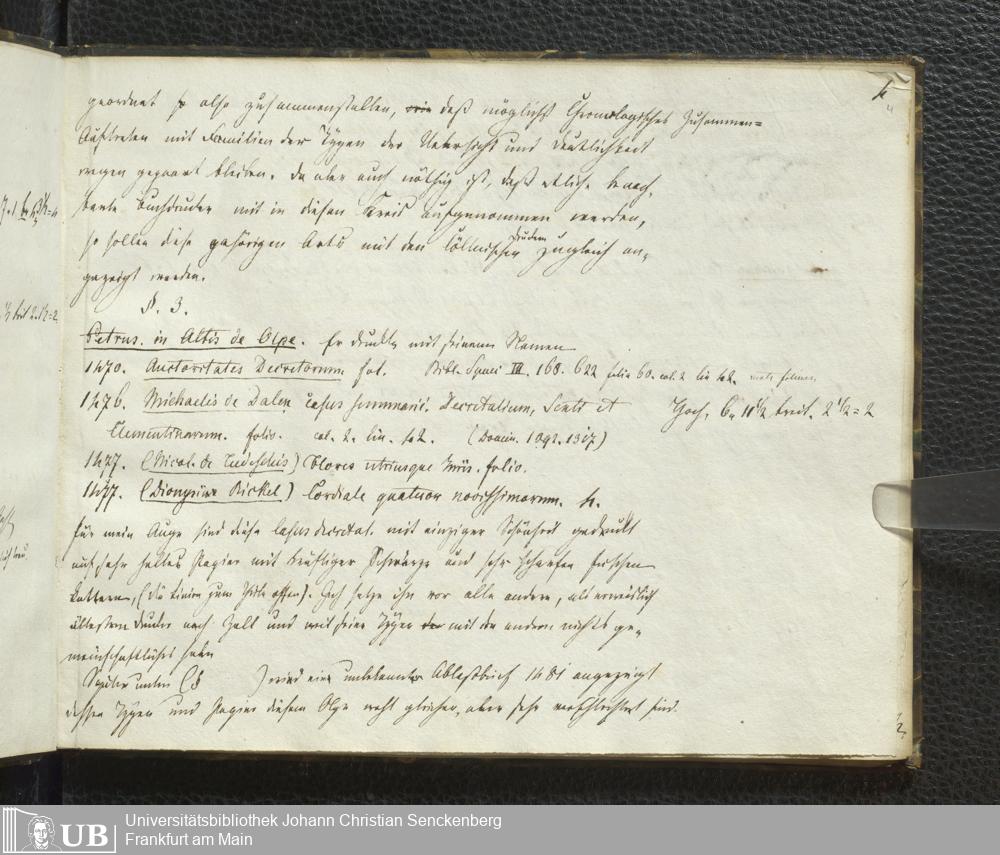 geordnet so also zusammenstellen, daß möglichst Chronologisches Zusammen=
Auftreten mit Familien der Typen der Uebersicht und Deutlichkeit
wegen gepaart bleiben. Da aber auch nöthig ist, daß etliche benach,
barte Buchdrucker mit in diesen Kreis aufgenommen werden,
so sollen diese gehörigen Orts mit den Cöllnischen Drucken zugleich an,
gezeigt werden.
§. 3.
Petrus in Altis de Olpe. Er druckte mit seinem Namen
1470. Auctoritates Decretorum fol. Bibl. Spenc III. 168. 622 folia 60. col. 2 lin 42.
1476. Michaelis de Dalen Casus summarii. Decretalium, Sexti et Hoch, 6. 11 1/2 breit. 2 1/2 = 2
Clementinarum. folio. col. 2. lin. 42. (Denin. 1092. 1317)
1477. (Nicol. de Tudeschis) Flores utriusque Iuris. folio.
1477. (Dionysius Rickel) Cordiale quatuor novissimorum. 4.
für mein Auge sind diese Casus decretal. mit einziger Schönheit gedruckt
auf sehr helles Papier mit kräftiger Schwärze und sehr scharfen frischen
Lettern, (die Linien zum Theile offen). Ich setze ihn vor alle andere, als
ältesten Drucker nach Zell und weil seine Typen mit den andern nichts ge,
meinschaftliches haben
Später unten (§ ) wird ein unbekannter Ablaßbrief 1481 angezeigt
dessen Typen und Papier diesem Olpe wohl gleichen, aber sehr verschlechtert sind.
Universitätsbibliothek Johann Christian Senckenberg
Frankfurt am Main
UB